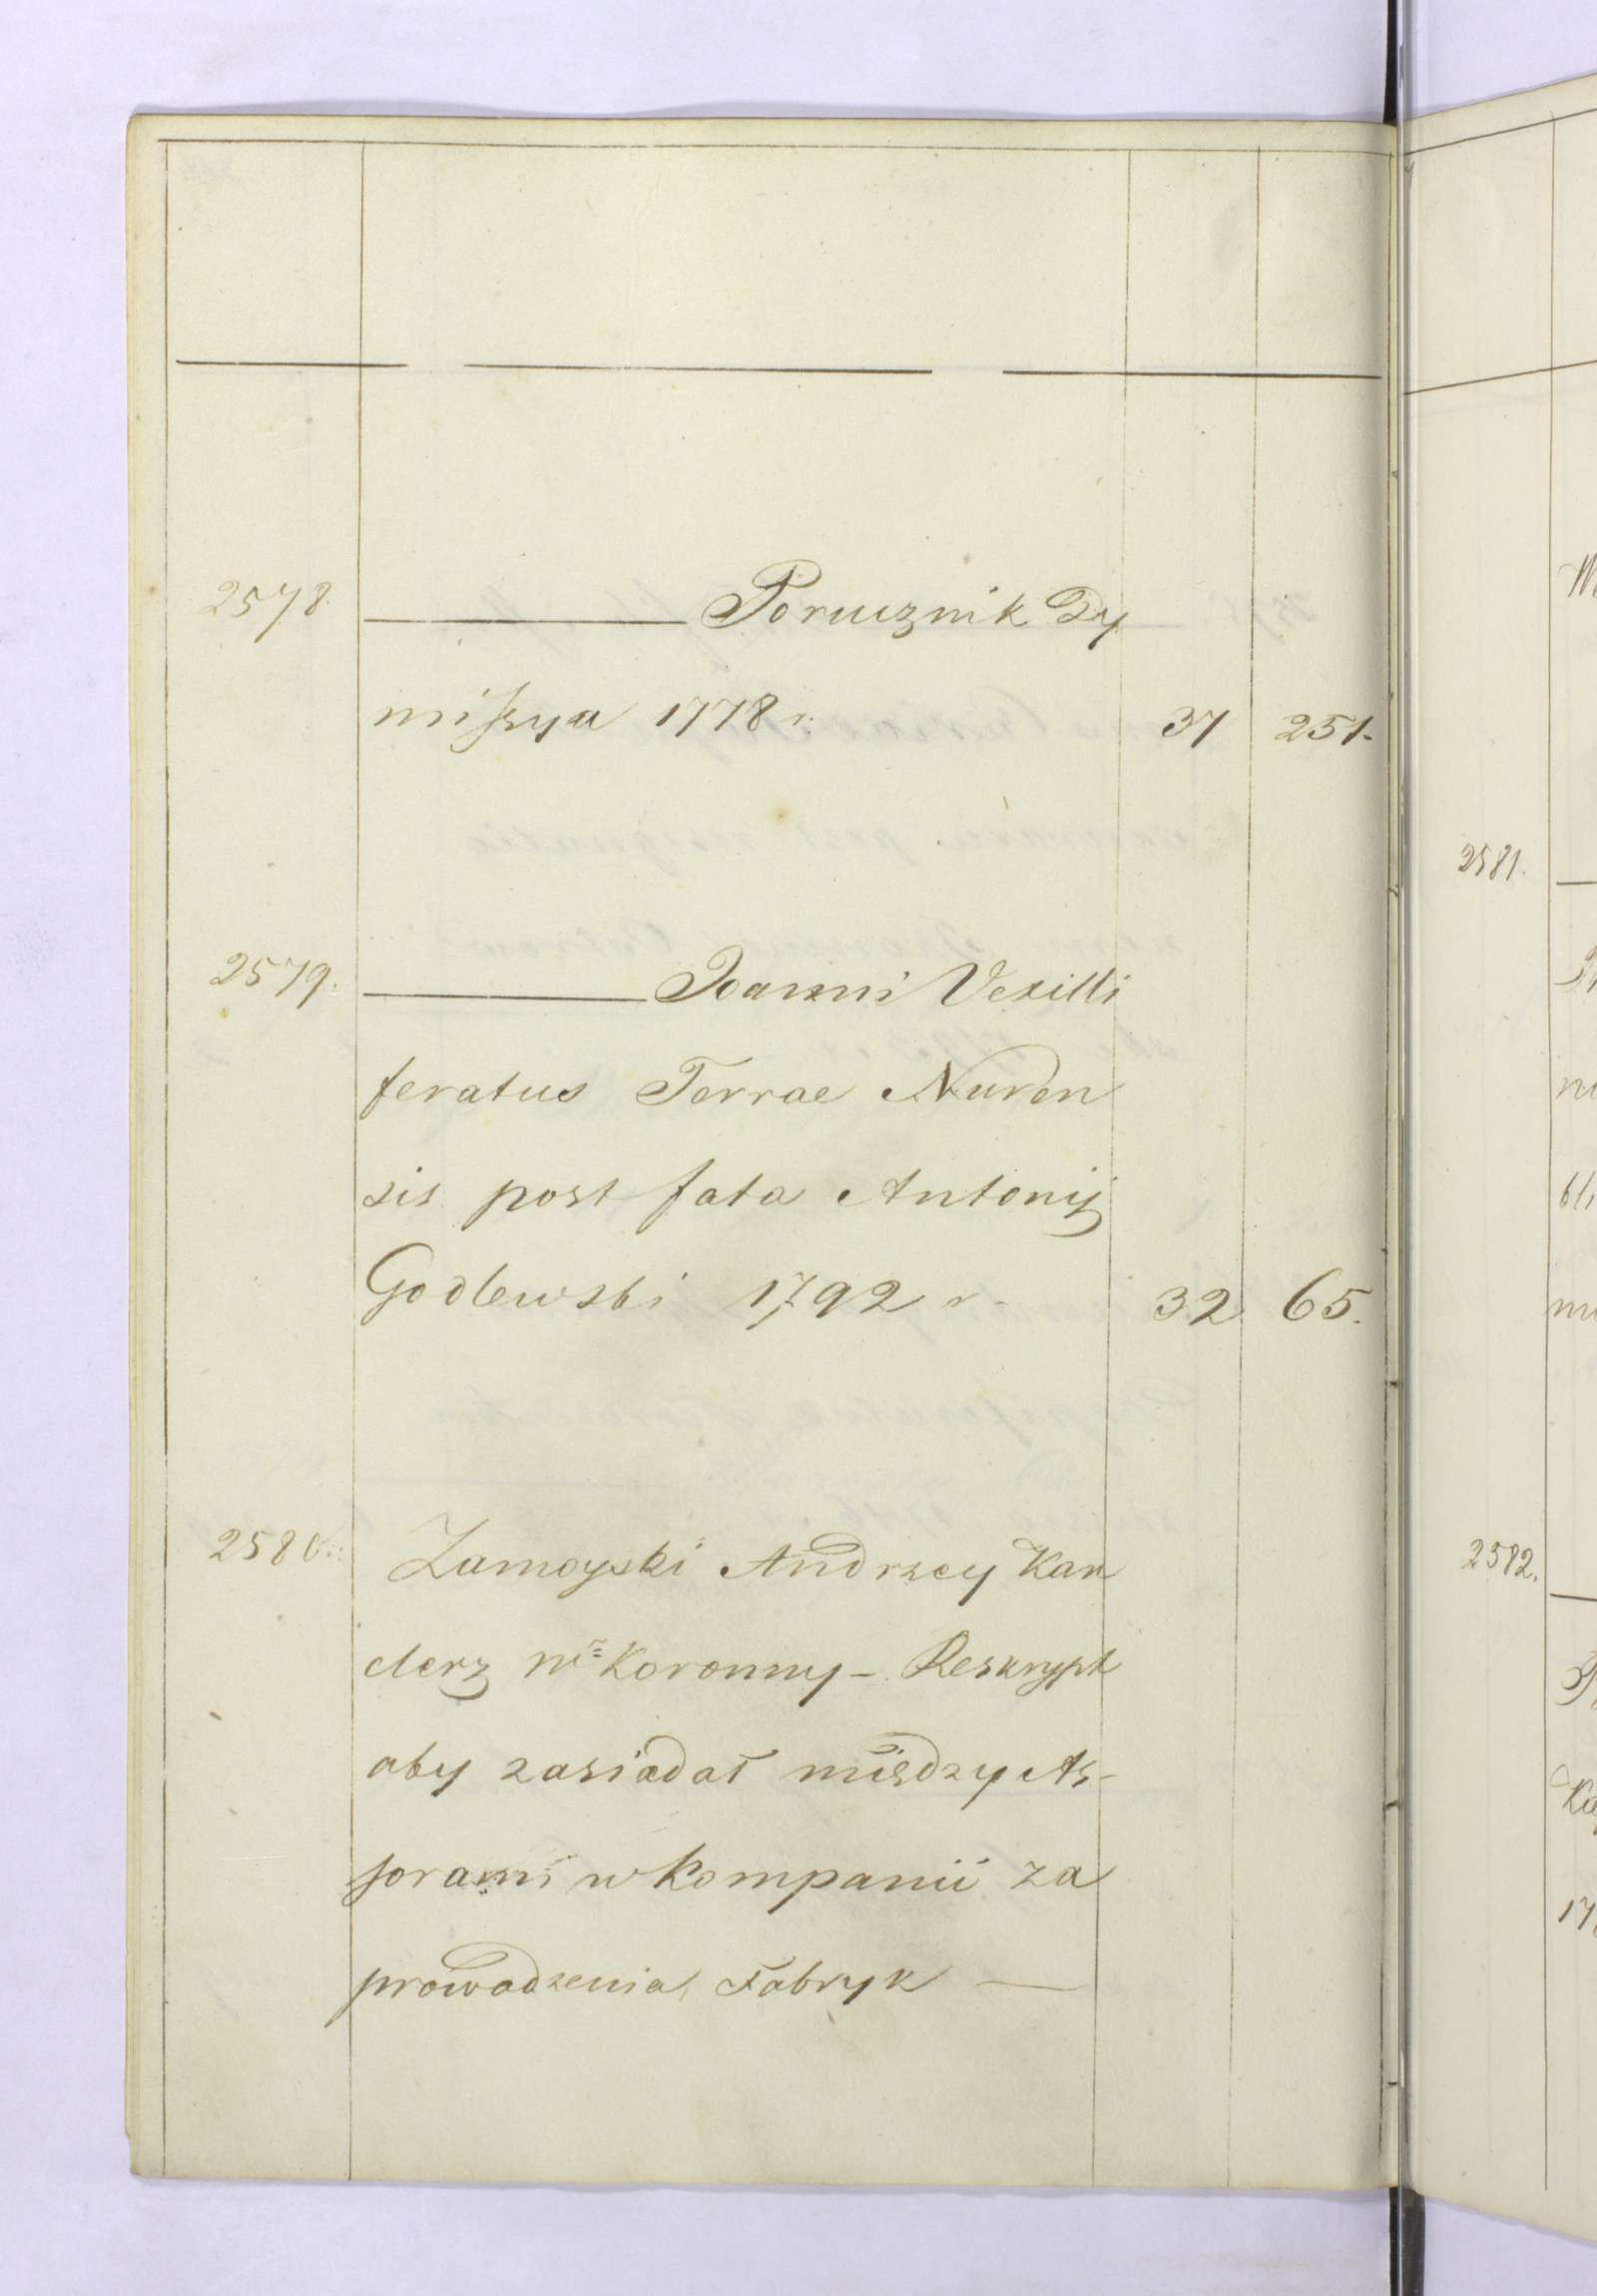 2578. ——— Porucznik Dy
missya 1778 r. 37 251.
2579. ——— Joanni Vexilli
feratus Terrae Nurен
sis post fata Antonij
Godlewski 1792 r. 32 65.
2580. Zamoyski Andrzey Kan
clerz W. Koronny – Reskrypt
aby zasiadał między As-
sorami w Kompanii za
prowadzenia Fabryk —
2581.
2582.